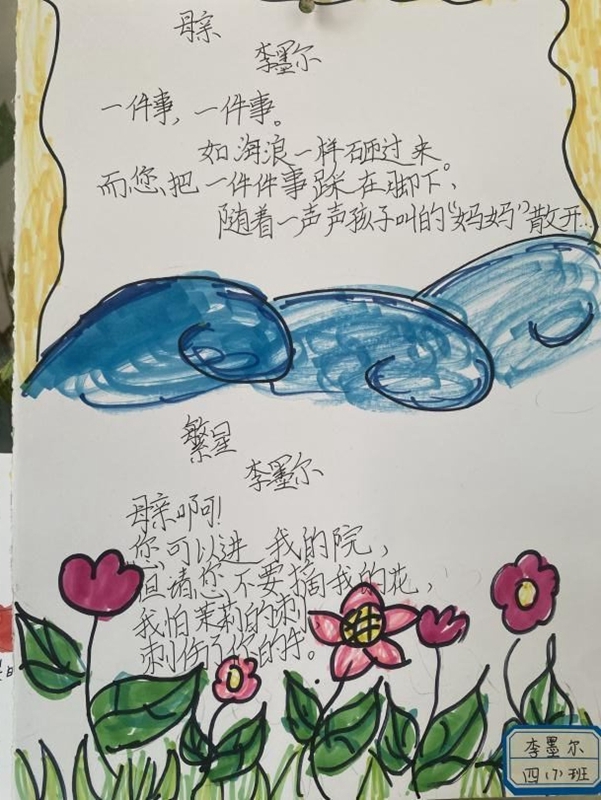 母亲
李墨尔
一件事，一件事。
如海浪一样砸过来。
而您，把一件件事踩在脚下，
随着一声声孩子叫的“妈妈”散开…
繁星
李墨尔
母亲啊！
您可以进我的院，
但请您不要摘我的花，
我怕茉莉的刺，
刺伤了你的手。
李墨尔
四（7）班